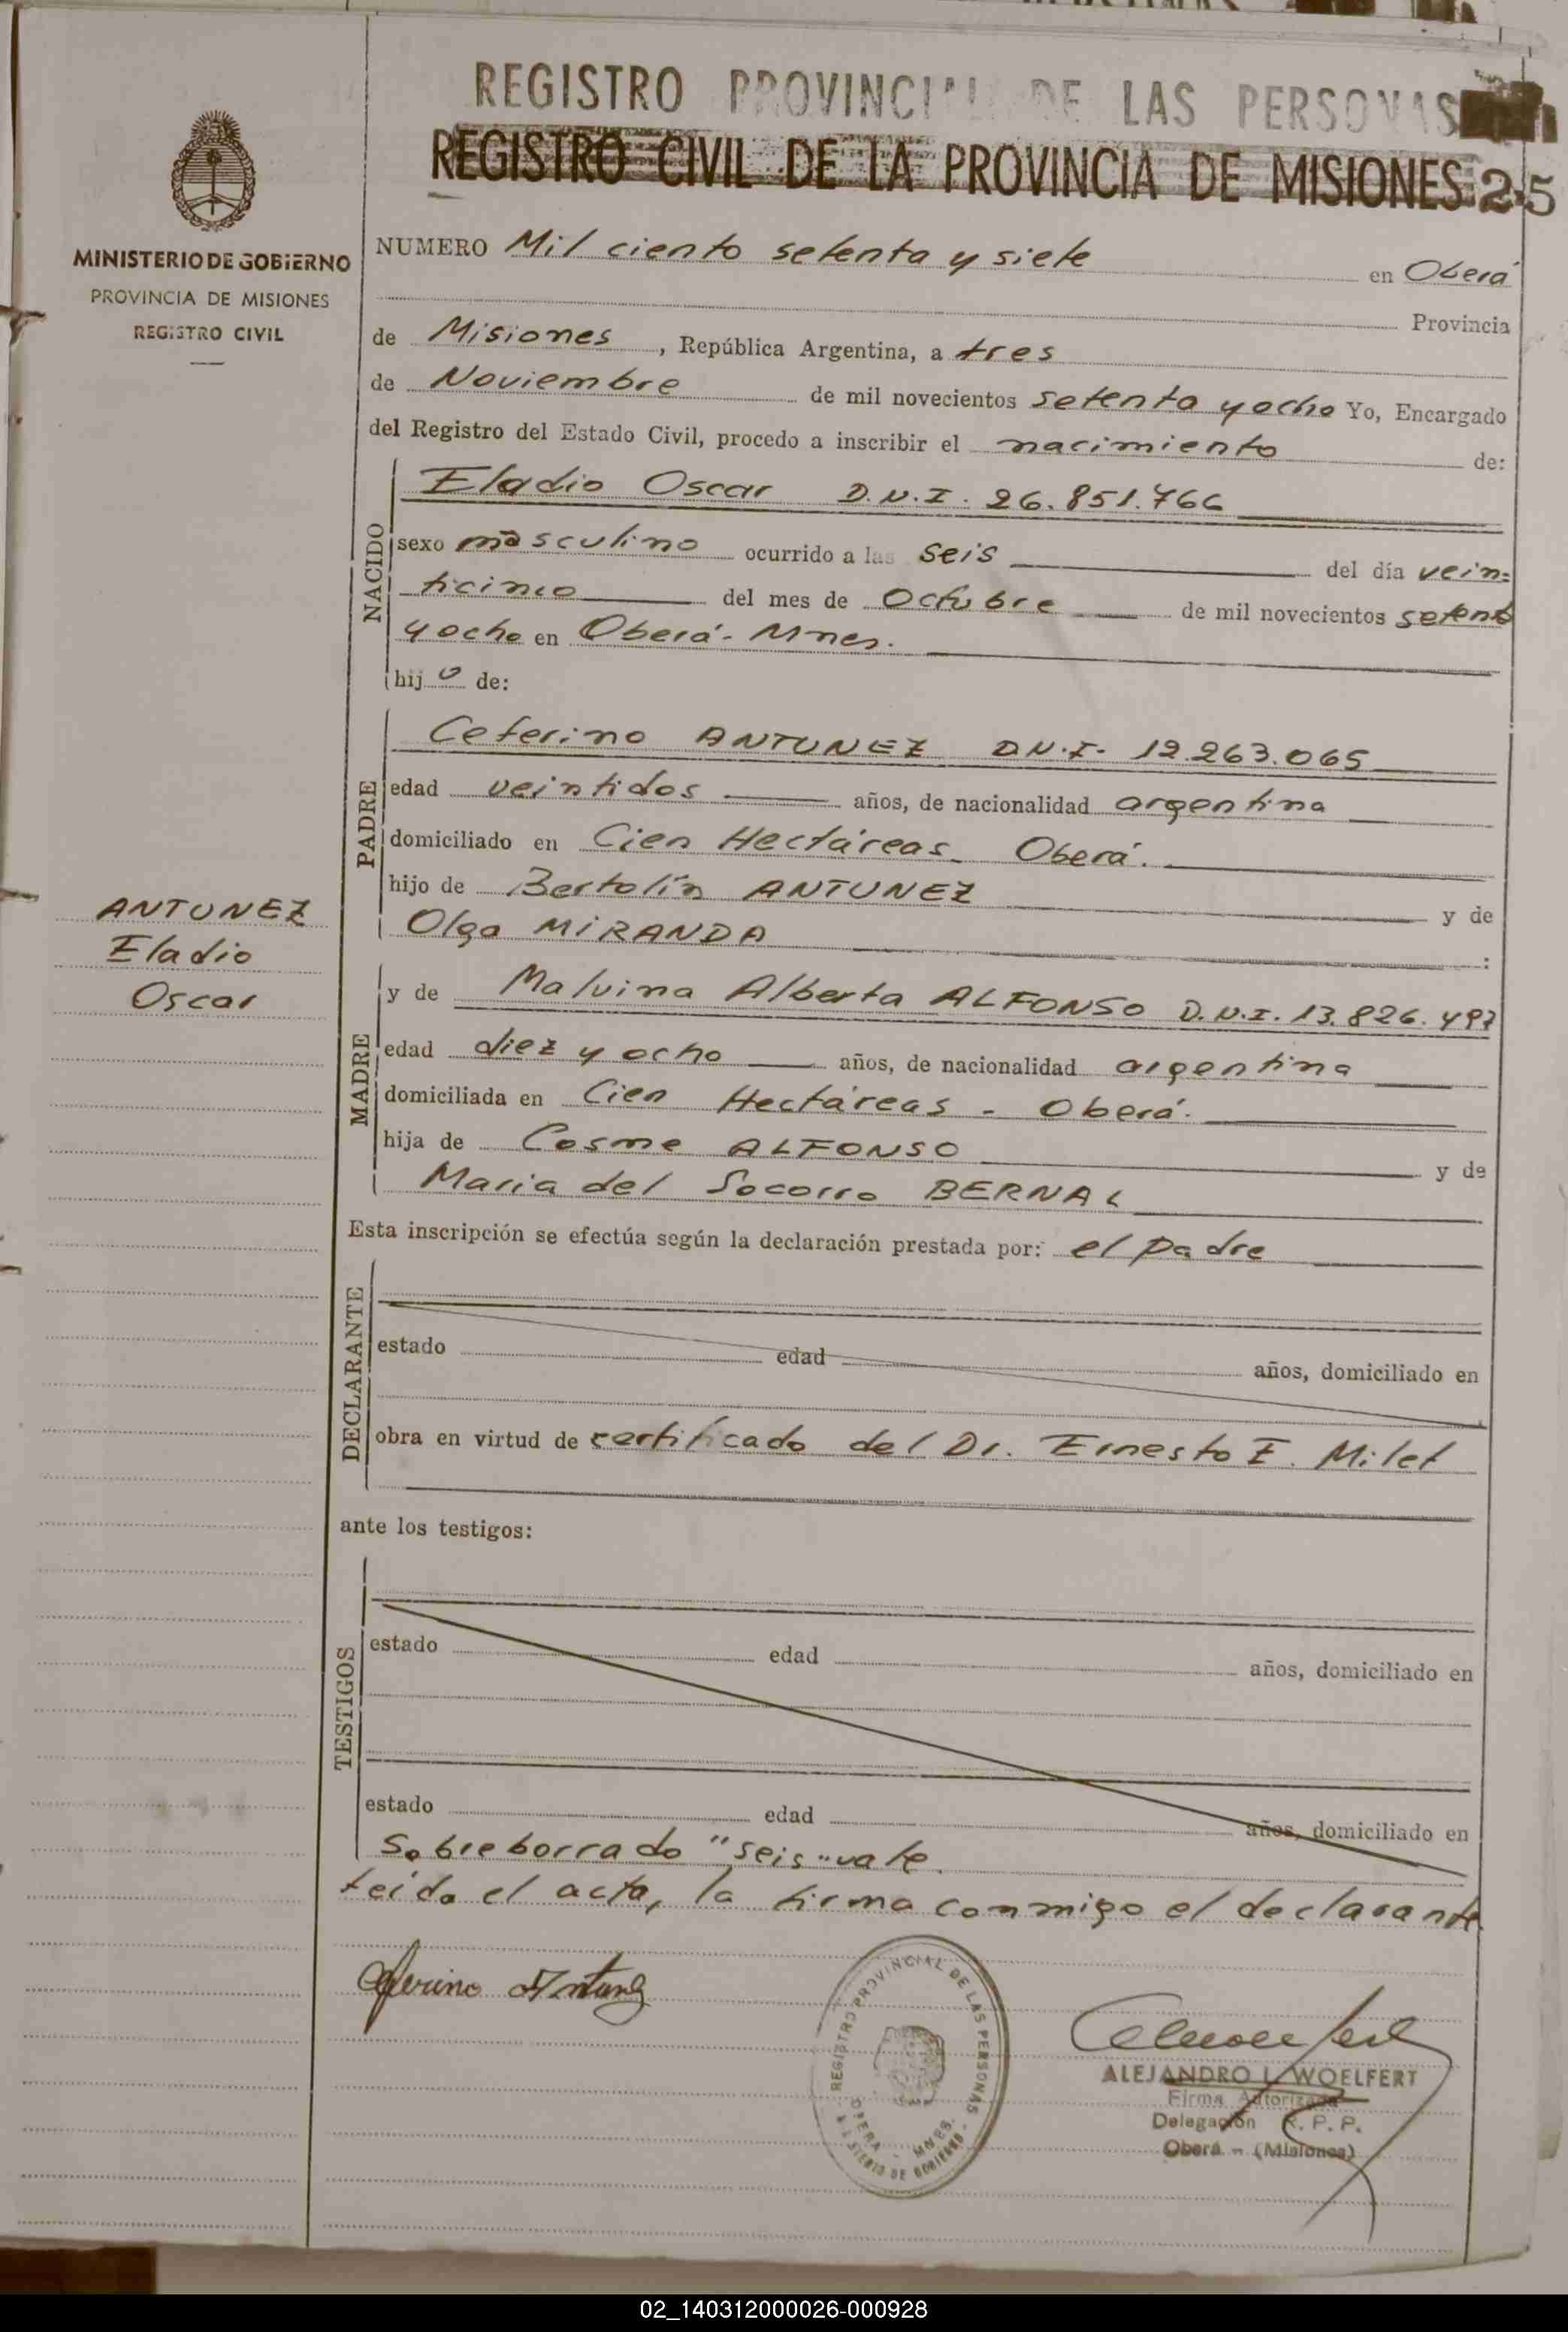 REGISTRO PROVINCIAL DE LAS PERSONAS
REGISTRO CIVIL DE LA PROVINCIA DE MISIONES 25
MINISTERIO DE GOBIERNO
PROVINCIA DE MISIONES
REGISTRO CIVIL
NUMERO Mil ciento setenta y siete en Oberá
Provincia
de Misiones, República Argentina, a tres
de Noviembre de mil novecientos setenta y ocho Yo, Encargado
del Registro del Estado Civil, procedo a inscribir el nacimiento de:
NACIDO
Eladio Oscar D.N.I. 26.851.766
sexo masculino ocurrido a las seis del día vein=
ticinco del mes de Octubre de mil novecientos setenta
y ocho en Oberá - Mnes.
hijo de:
PADRE
Ceferino ANTUNEZ D.N.I. 12.263.065
edad veintidos años, de nacionalidad argentina
domiciliado en Cien Hectáreas - Oberá.
hijo de Bertolín ANTUNEZ y de
Olga MIRANDA :
ANTUNEZ
Eladio
Oscar
MADRE
y de Malvina Alberta ALFONSO D.N.I. 13.826.497
edad diez y ocho años, de nacionalidad argentina
domiciliada en Cien Hectáreas - Oberá.
hija de Cosme ALFONSO y de
Maria del Socorro BERNAL
Esta inscripción se efectúa según la declaración prestada por: el padre
DECLARANTE
estado edad años, domiciliado en
obra en virtud de certificado del Dr. Ernesto E. Milet
ante los testigos:
TESTIGOS
estado edad años, domiciliado en
estado edad años, domiciliado en
Sobreborrado "seis" vale.
Leída el acta, la firma conmigo el declarante
Ceferino Antunez
REGISTRO PROVINCIAL DE LAS PERSONAS
OBERA - MNES.
MINISTERIO DE GOBIERNO
ALEJANDRO L. WOELFERT
Firma Autorizada
Delegación R. P. P.
Oberá - (Misiones)
02_140312000026-000928